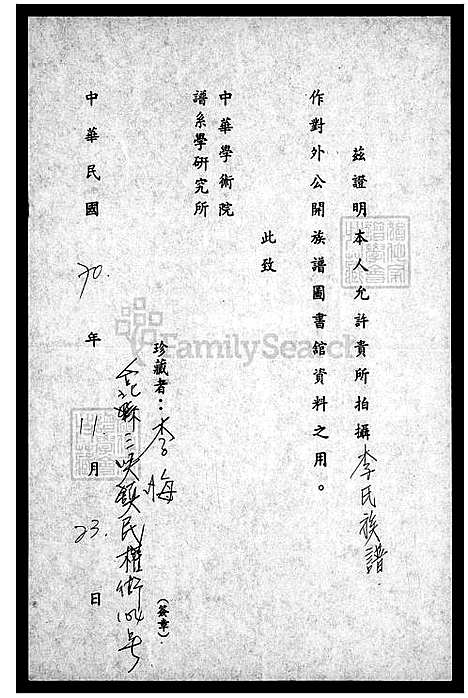 茲證明本人允許貴所拍攝李氏族譜
作對外公開族譜圖書館資料之用。
此致
中華學術院
譜系學研究所
珍藏者：李梅
(簽章)
台北縣三峽鎮民權街104號
中華民國70.年11.月23.日
FamilySearch